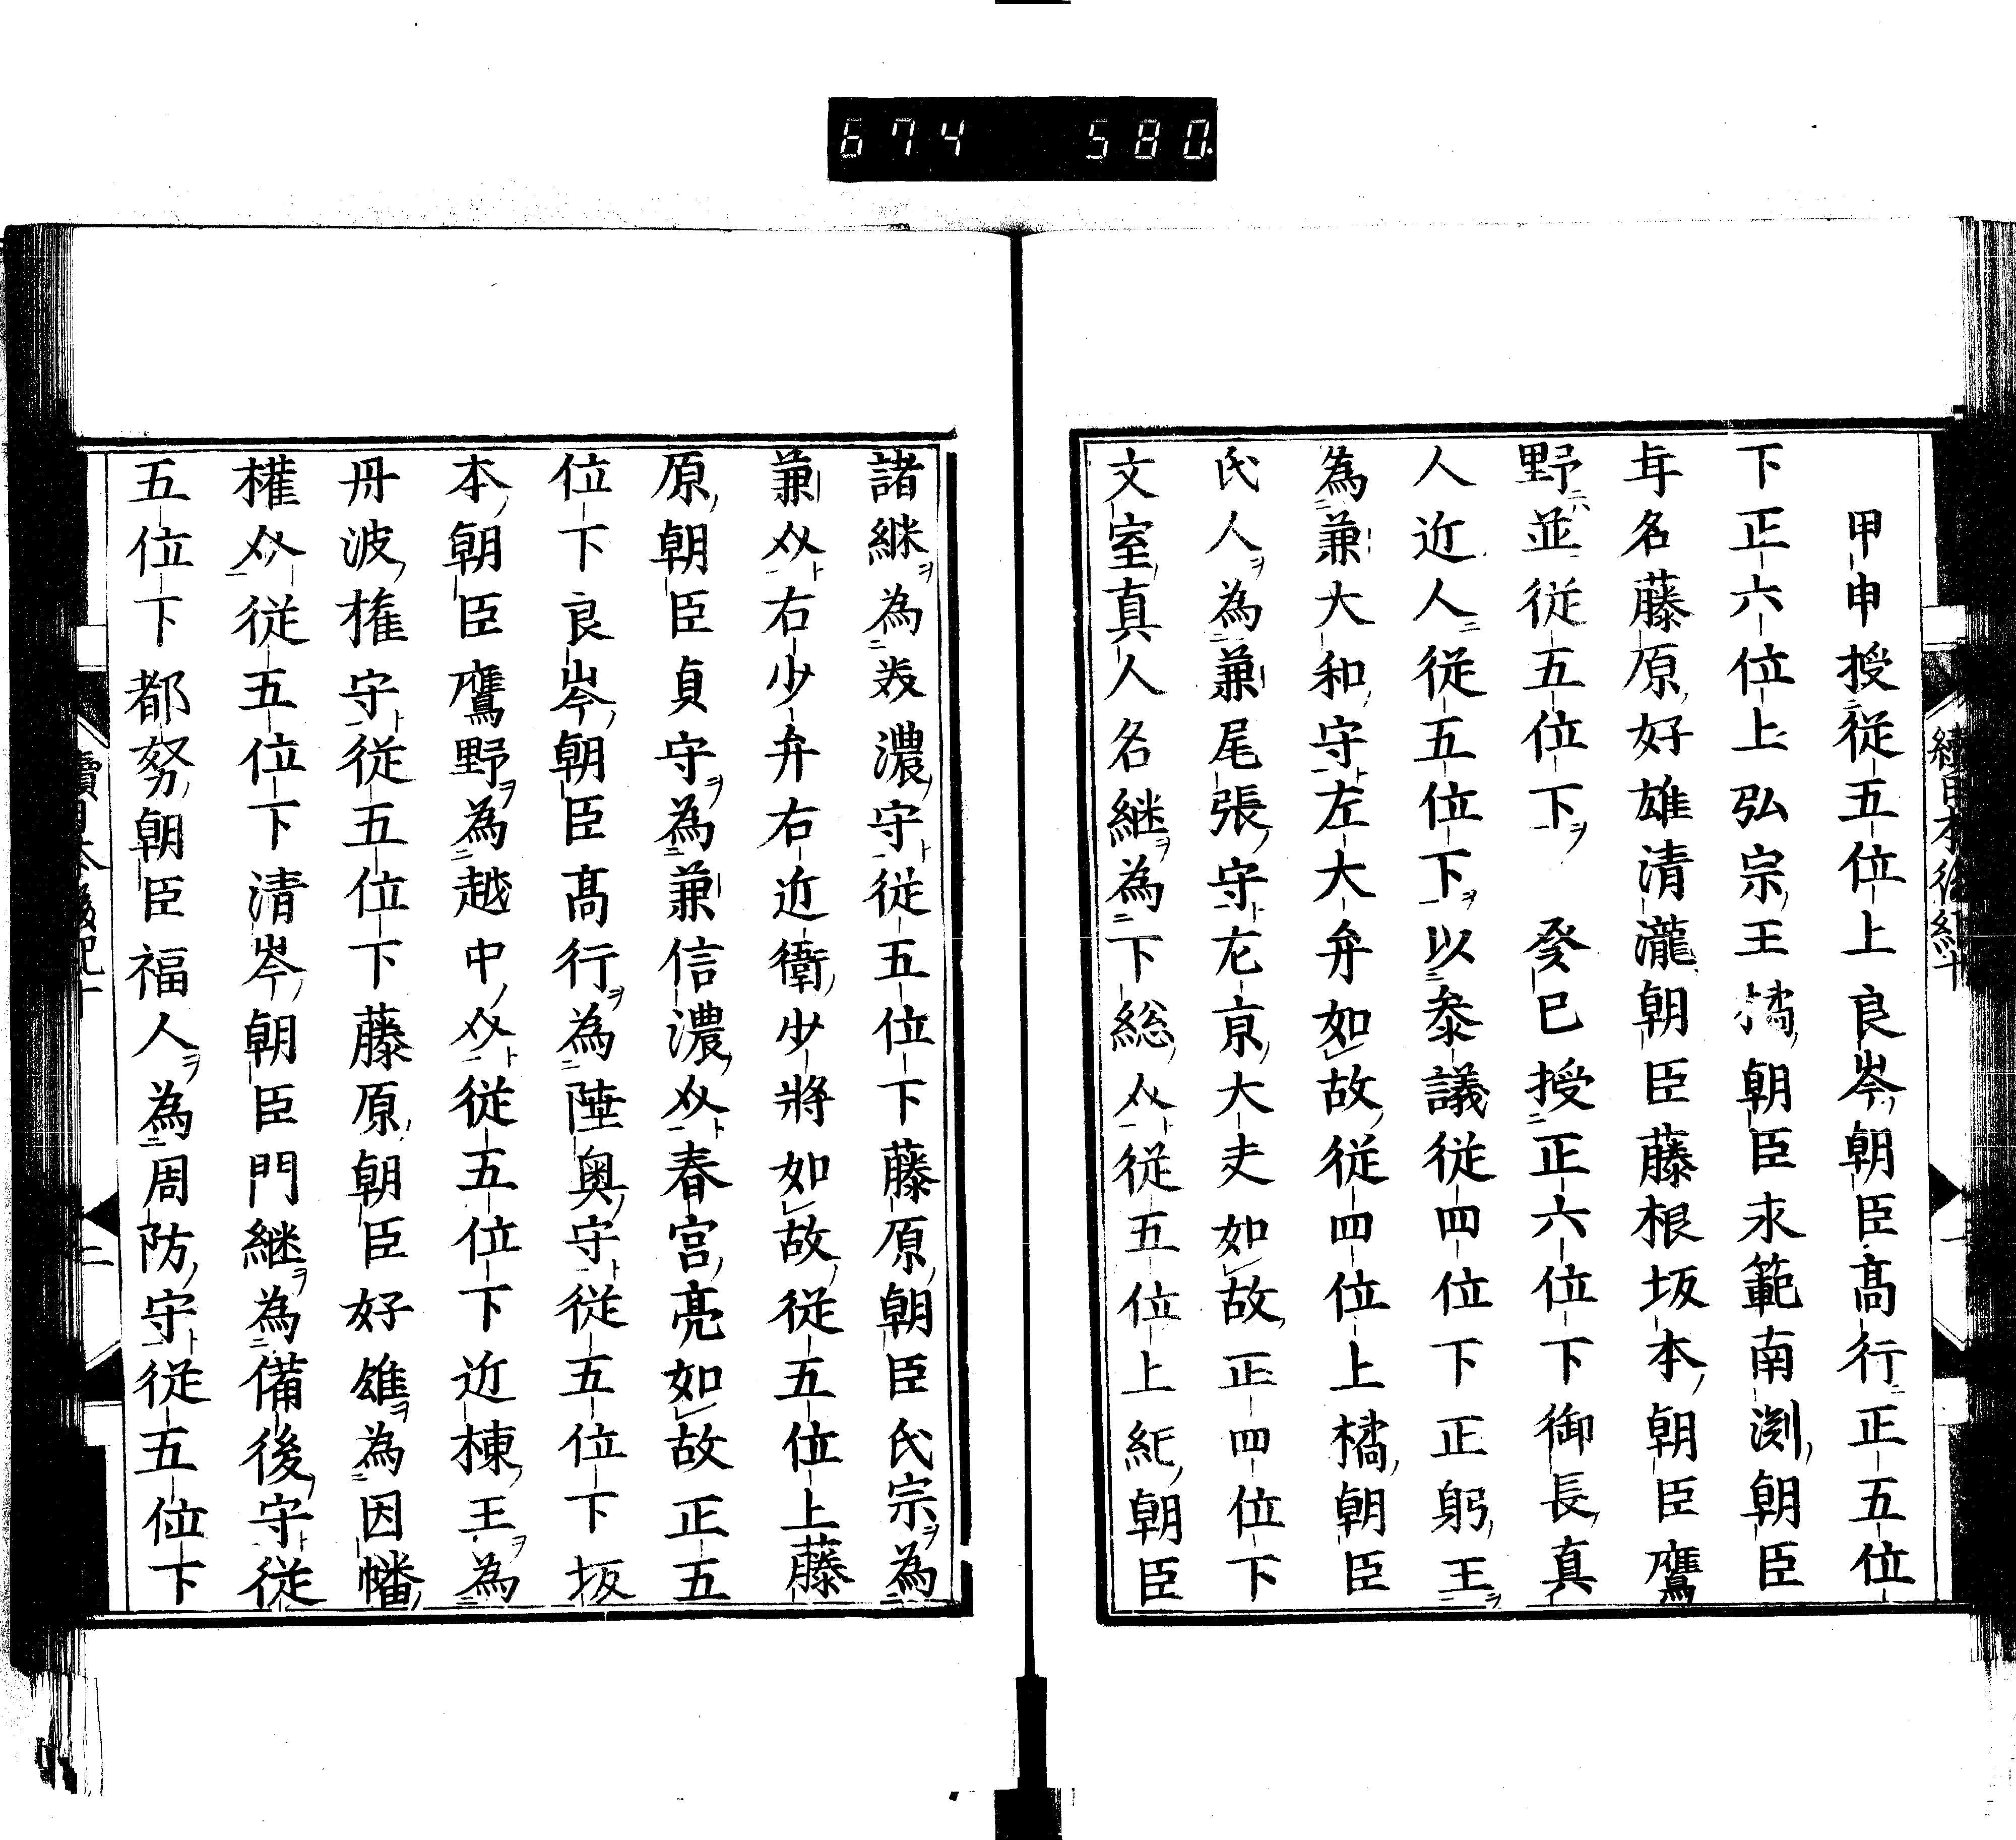 674 580.
甲申授従五位上良岑朝臣髙行正五位
下正六位上弘宗王橘朝臣求範南渕朝臣
年名藤原好雄清瀧朝臣藤根坂本朝臣鷹
野並従五位下 癸巳授正六位下御長真
人近人従五位下以叅議従四位下正躬王
為兼大和守左大弁如故従四位上橘朝臣
氏人為兼尾張守左京大夫如故正四位下
文室真人名継為下総守従五位上紀朝臣
諸継為美濃守従五位下藤原朝臣氏宗為
兼介右少弁右近衛少將如故従五位上藤
原朝臣貞守為兼信濃介春宮亮如故正五
位下良岑朝臣髙行為陸奥守従五位下坂
本朝臣鷹野為越中介従五位下近棟王為
丹波権守従五位下藤原朝臣好雄為因幡
權介従五位下清岑朝臣門継為備後守従
五位下都努朝臣福人為周防守従五位下